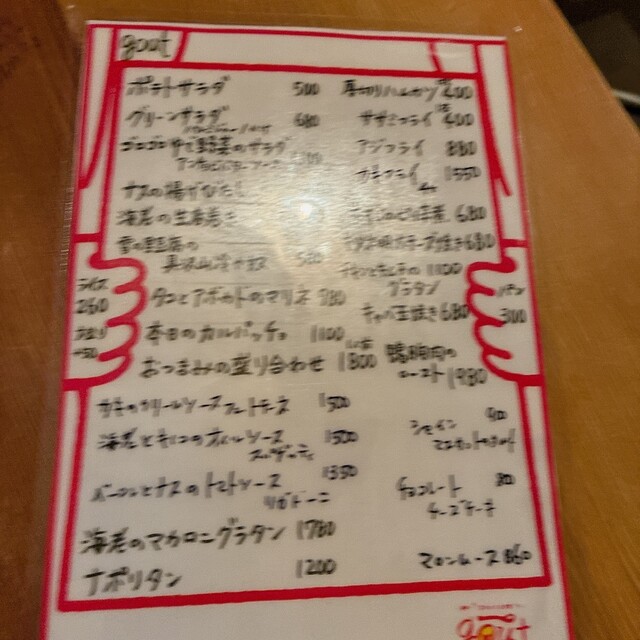 gout
ポテトサラダ 500
グリーンサラダ 680
ゴロゴロゆで野菜のサラダ
ナスの揚げびたし
海老の生春巻き
具沢山冷やっこ
タコとアボカドのマリネ 980
本日のカルパッチョ 1100
おつまみの盛り合わせ 1800
厚切りハムカツ 400
ササミフライ 400
アジフライ 880
カキフライ 1550
680
チーズ焼き 680
1100
グラタン
680
鴨胸肉の
ロースト 1980
ライス
260
大盛り
+50
パン
300
カキのクリームソースフェットチーネ 1500
海老ときのこのオイルソース 1500
スパゲッティ
ベーコンとナスのトマトソース 1350
リガトーニ
海老のマカロニグラタン 1780
ナポリタン 1200
シャイン
マスカットの
チョコレート
チーズケーキ
マロンムース 860
gout